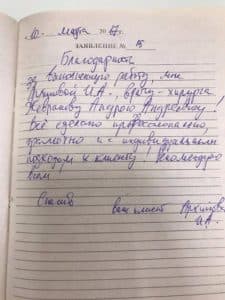 10. марта 2017 г.
ЗАЯВЛЕНИЕ № 15
Благодарность
за выполненную работу, мне
И.А., врачу-хирурга
Андрею Андреевичу!
всё сделано профессионально,
грамотно и с индивидуальным
подходом к клиенту! Рекомендую
всем!
Спасибо ваш клиент
И.А.